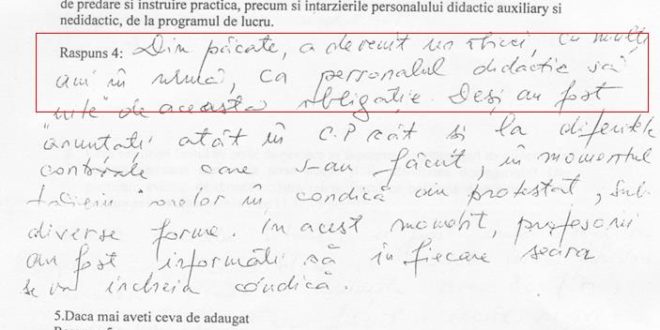 de predare si instruire practica, precum si intarzierile personalului didactic auxiliary si
nedidactic, de la programul de lucru.
Raspuns 4: Din păcate, a devenit un obicei, cu mulți
ani în urmă, ca personalul didactic să
"uite" de aceasta obligatie. Deși au fost
"anuntați" atât în C.P cât si la diferitele
controale care s-au făcut, în momentul
încheierii orelor în condică au protestat, sub
diverse forme. In acest moment, profesorii
au fost informati că în fiecare seara
se va incheia condică.
5.Daca mai aveti ceva de adaugat